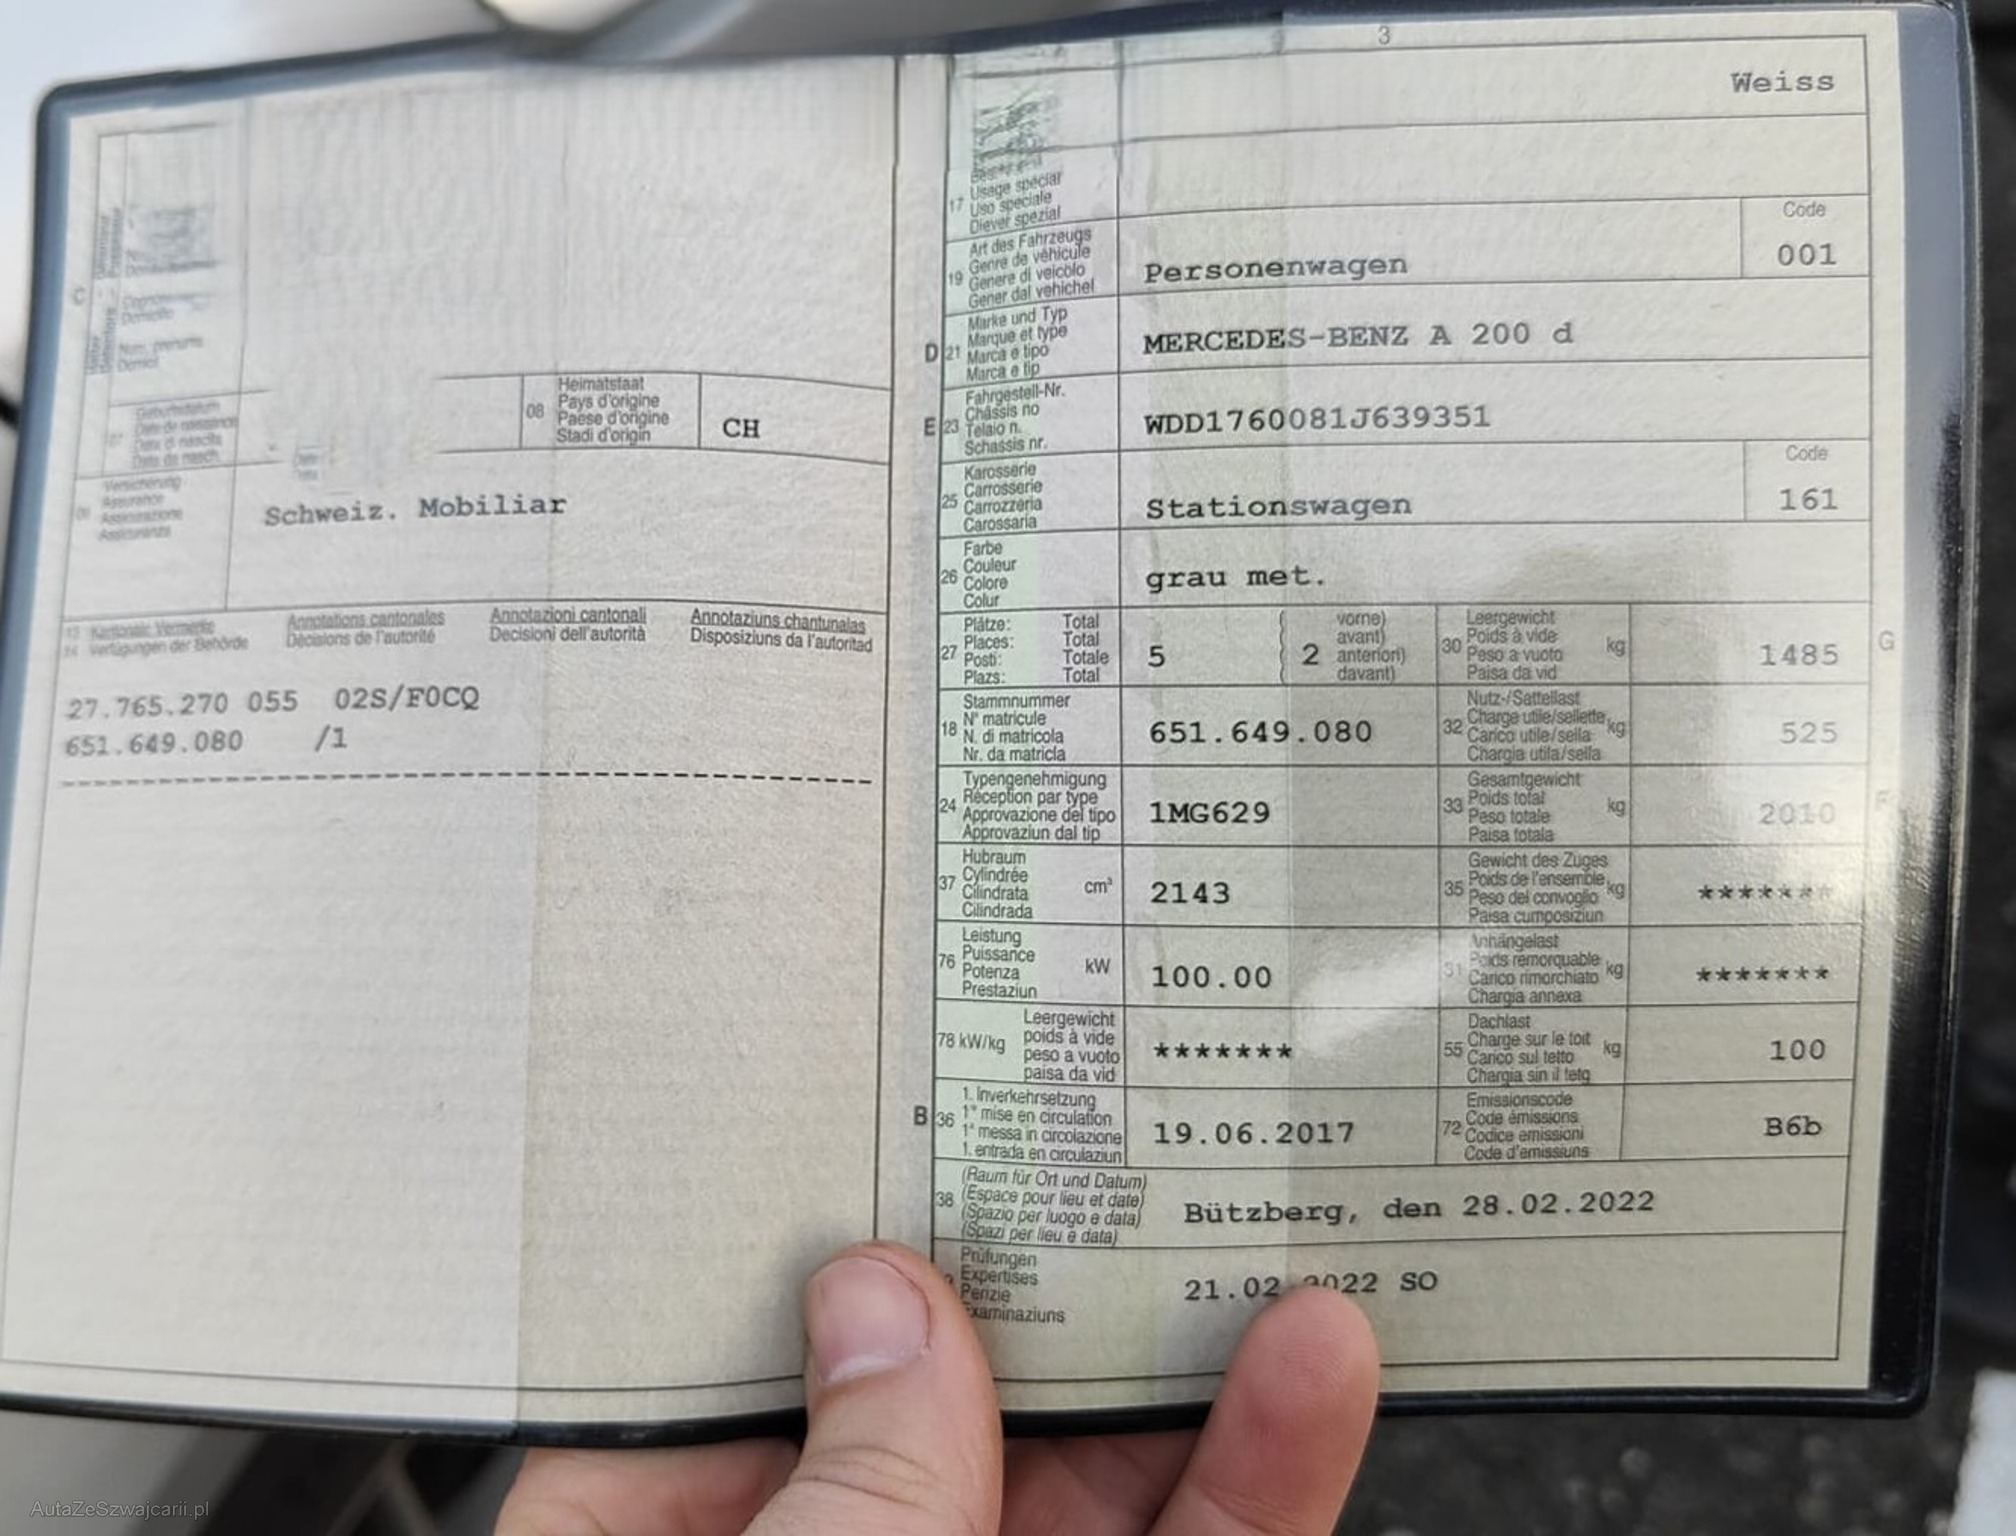 3
Weiss
17 Usage spécial
Uso speciale
Diever spezial
Code
19 Art des Fahrzeugs
Genre de véhicule
Genere di veicolo
Gener dal vehichel
Personenwagen 001
D 21 Marke und Typ
Marque et type
Marca e tipo
Marca e tip
MERCEDES-BENZ A 200 d
E 23 Fahrgestell-Nr.
Châssis no
Telaio n.
Schassis nr.
WDD1760081J639351
Code
25 Karosserie
Carrosserie
Carrozzeria
Carossaria
Stationswagen 161
26 Farbe
Couleur
Colore
Colur
grau met.
27 Plätze: Total
Places: Total
Posti: Totale
Plazs: Total
5 ( 2 vorne)
avant)
anteriori)
davant)
30 Leergewicht
Poids à vide
Peso a vuoto
Paisa da vid
kg 1485 G
18 Stammnummer
N° matricule
N. di matricola
Nr. da matricla
651.649.080
32 Nutz-/Sattellast
Charge utile/sellette
Carico utile/sella
Chargia utila/sella
kg 525
24 Typengenehmigung
Réception par type
Approvazione del tipo
Approvaziun dal tip
1MG629
33 Gesamtgewicht
Poids total
Peso totale
Paisa totala
kg 2010 F
37 Hubraum
Cylindrée
Cilindrata
Cilindrada
cm³ 2143
35 Gewicht des Zuges
Poids de l'ensemble
Peso del convoglio
Paisa cumposiziun
kg *******
76 Leistung
Puissance
Potenza
Prestaziun
kW 100.00
31 Anhängelast
Poids remorquable
Carico rimorchiato
Chargia annexa
kg *******
78 kW/kg Leergewicht
poids à vide
peso a vuoto
paisa da vid
*******
55 Dachlast
Charge sur le toit
Carico sul tetto
Chargia sin il tetg
kg 100
B 36 1. Inverkehrsetzung
1re mise en circulation
1a messa in circolazione
1. entrada en circulaziun
19.06.2017
72 Emissionscode
Code émissions
Codice emissioni
Code d'emissiuns
B6b
38 (Raum für Ort und Datum)
(Espace pour lieu et date)
(Spazio per luogo e data)
(Spazi per lieu e data)
Bützberg, den 28.02.2022
Prüfungen
Expertises
Perizie
Examinaziuns
21.02 2022 SO
C
08 Heimatstaat
Pays d'origine
Paese d'origine
Stadi d'origin
CH
09 Versicherung
Assurance
Assicurazione
Assicuranza
Schweiz. Mobiliar
13 Kantonale Vermerke Annotations cantonales Annotazioni cantonali Annotaziuns chantunalas
14 Verfügungen der Behörde Décisions de l'autorité Decisioni dell'autorità Disposiziuns da l'autoritad
27.765.270 055 02S/F0CQ
651.649.080 /1
AutaZeSzwajcarii.pl